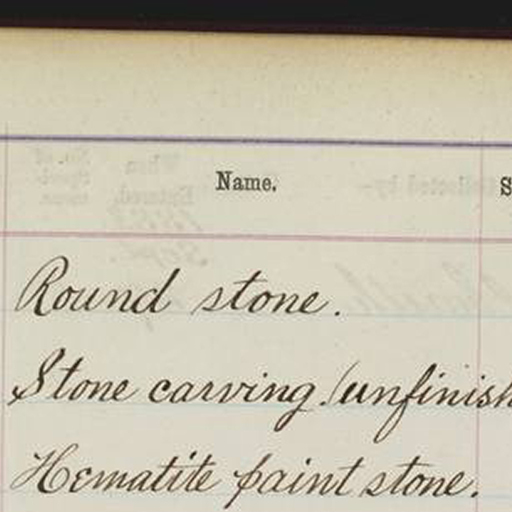 Name.
Round stone.
Stone carving (unfinish
Hematite paint stone.